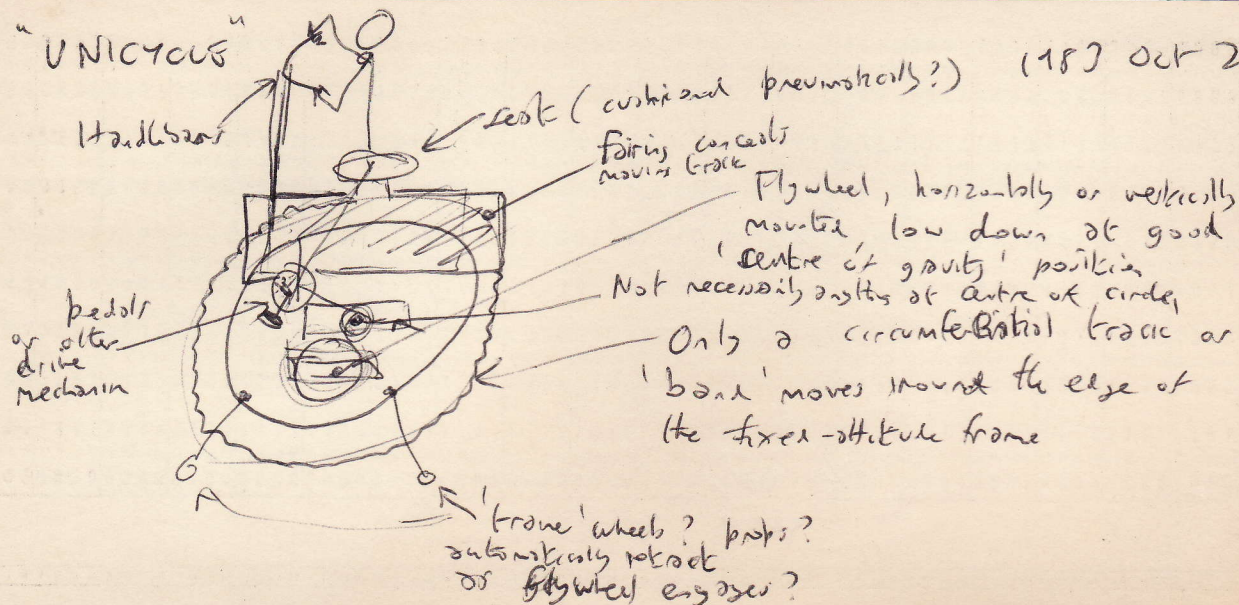 "UNICYCLE"
(18) Oct 2
Handlebars
seat (cushioned pneumatically?)
fairing conceals
moving track
Flywheel, horizontally or vertically
mounted, low down at good
'centre of gravity' position
Not necessarily anything at centre of circle,
pedals
or other
drive
mechanism
Only a circumferential track or
'band' moves around the edge of
the fixed-attitude frame
wheels? props?
automatically retract
as flywheel engages?